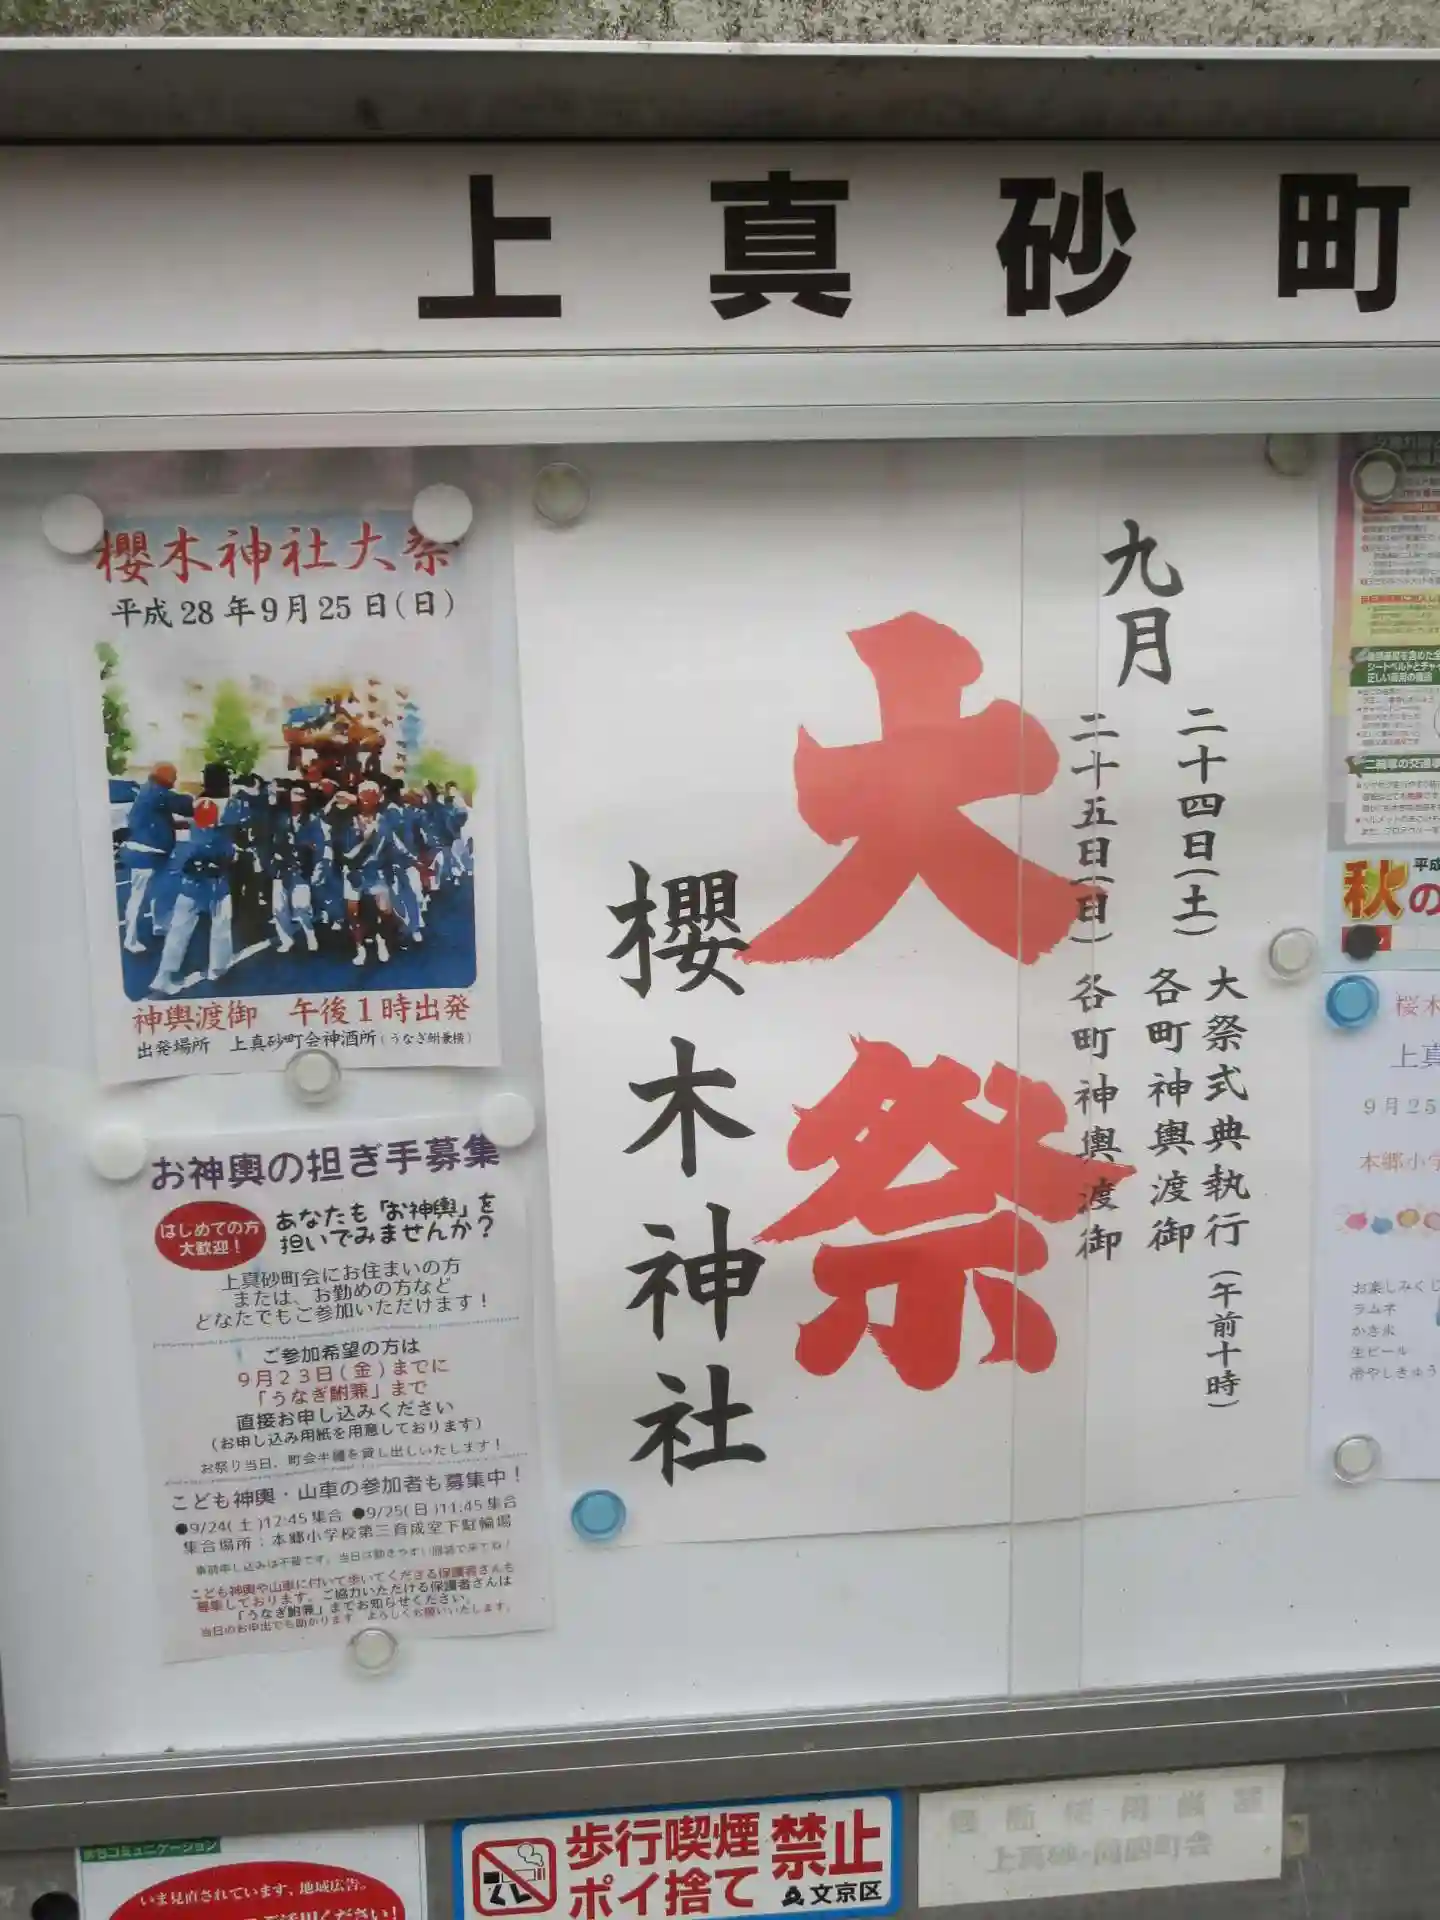 上真砂町
櫻木神社大祭
平成28年9月25日(日)
神輿渡御 午後1時出発
出発場所 上真砂町会神酒所(うなぎ鮒兼様)
お神輿の担ぎ手募集
はじめての方
大歓迎!
あなたも「お神輿」を
担いでみませんか?
上真砂町会にお住まいの方
または、お勤めの方など
どなたでもご参加いただけます!
ご参加希望の方は
9月23日(金)までに
「うなぎ鮒兼」まで
直接お申し込みください
(お申し込み用紙を用意しております)
お祭り当日、町会半纏を貸し出しいたします!
こども神輿・山車の参加者も募集中!
●9/24(土)12:45集合 ●9/25(日)11:45集合
集合場所:本郷小学校第三育成室下駐輪場
事前申し込みは不要です。当日は動きやすい服装で来てね!
こども神輿や山車に付いて歩いてくださる保護者さんも
募集しております。ご協力いただける保護者さんは
「うなぎ鮒兼」までお知らせください。
当日のお申出でも助かります よろしくお願いいたします。
九月
二十四日(土)
大祭式典執行(午前十時)
各町神輿渡御
二十五日(日)各町神輿渡御
大祭
櫻木神社
正しい着用の徹底
秋の
平成
桜木
上真
9月25
本郷小学
お楽しみくじ
ラムネ
かき氷
生ビール
冷やしきゅう
いま見直されています、地域広告。
ご活用ください!
歩行喫煙
ポイ捨て
禁止
文京区